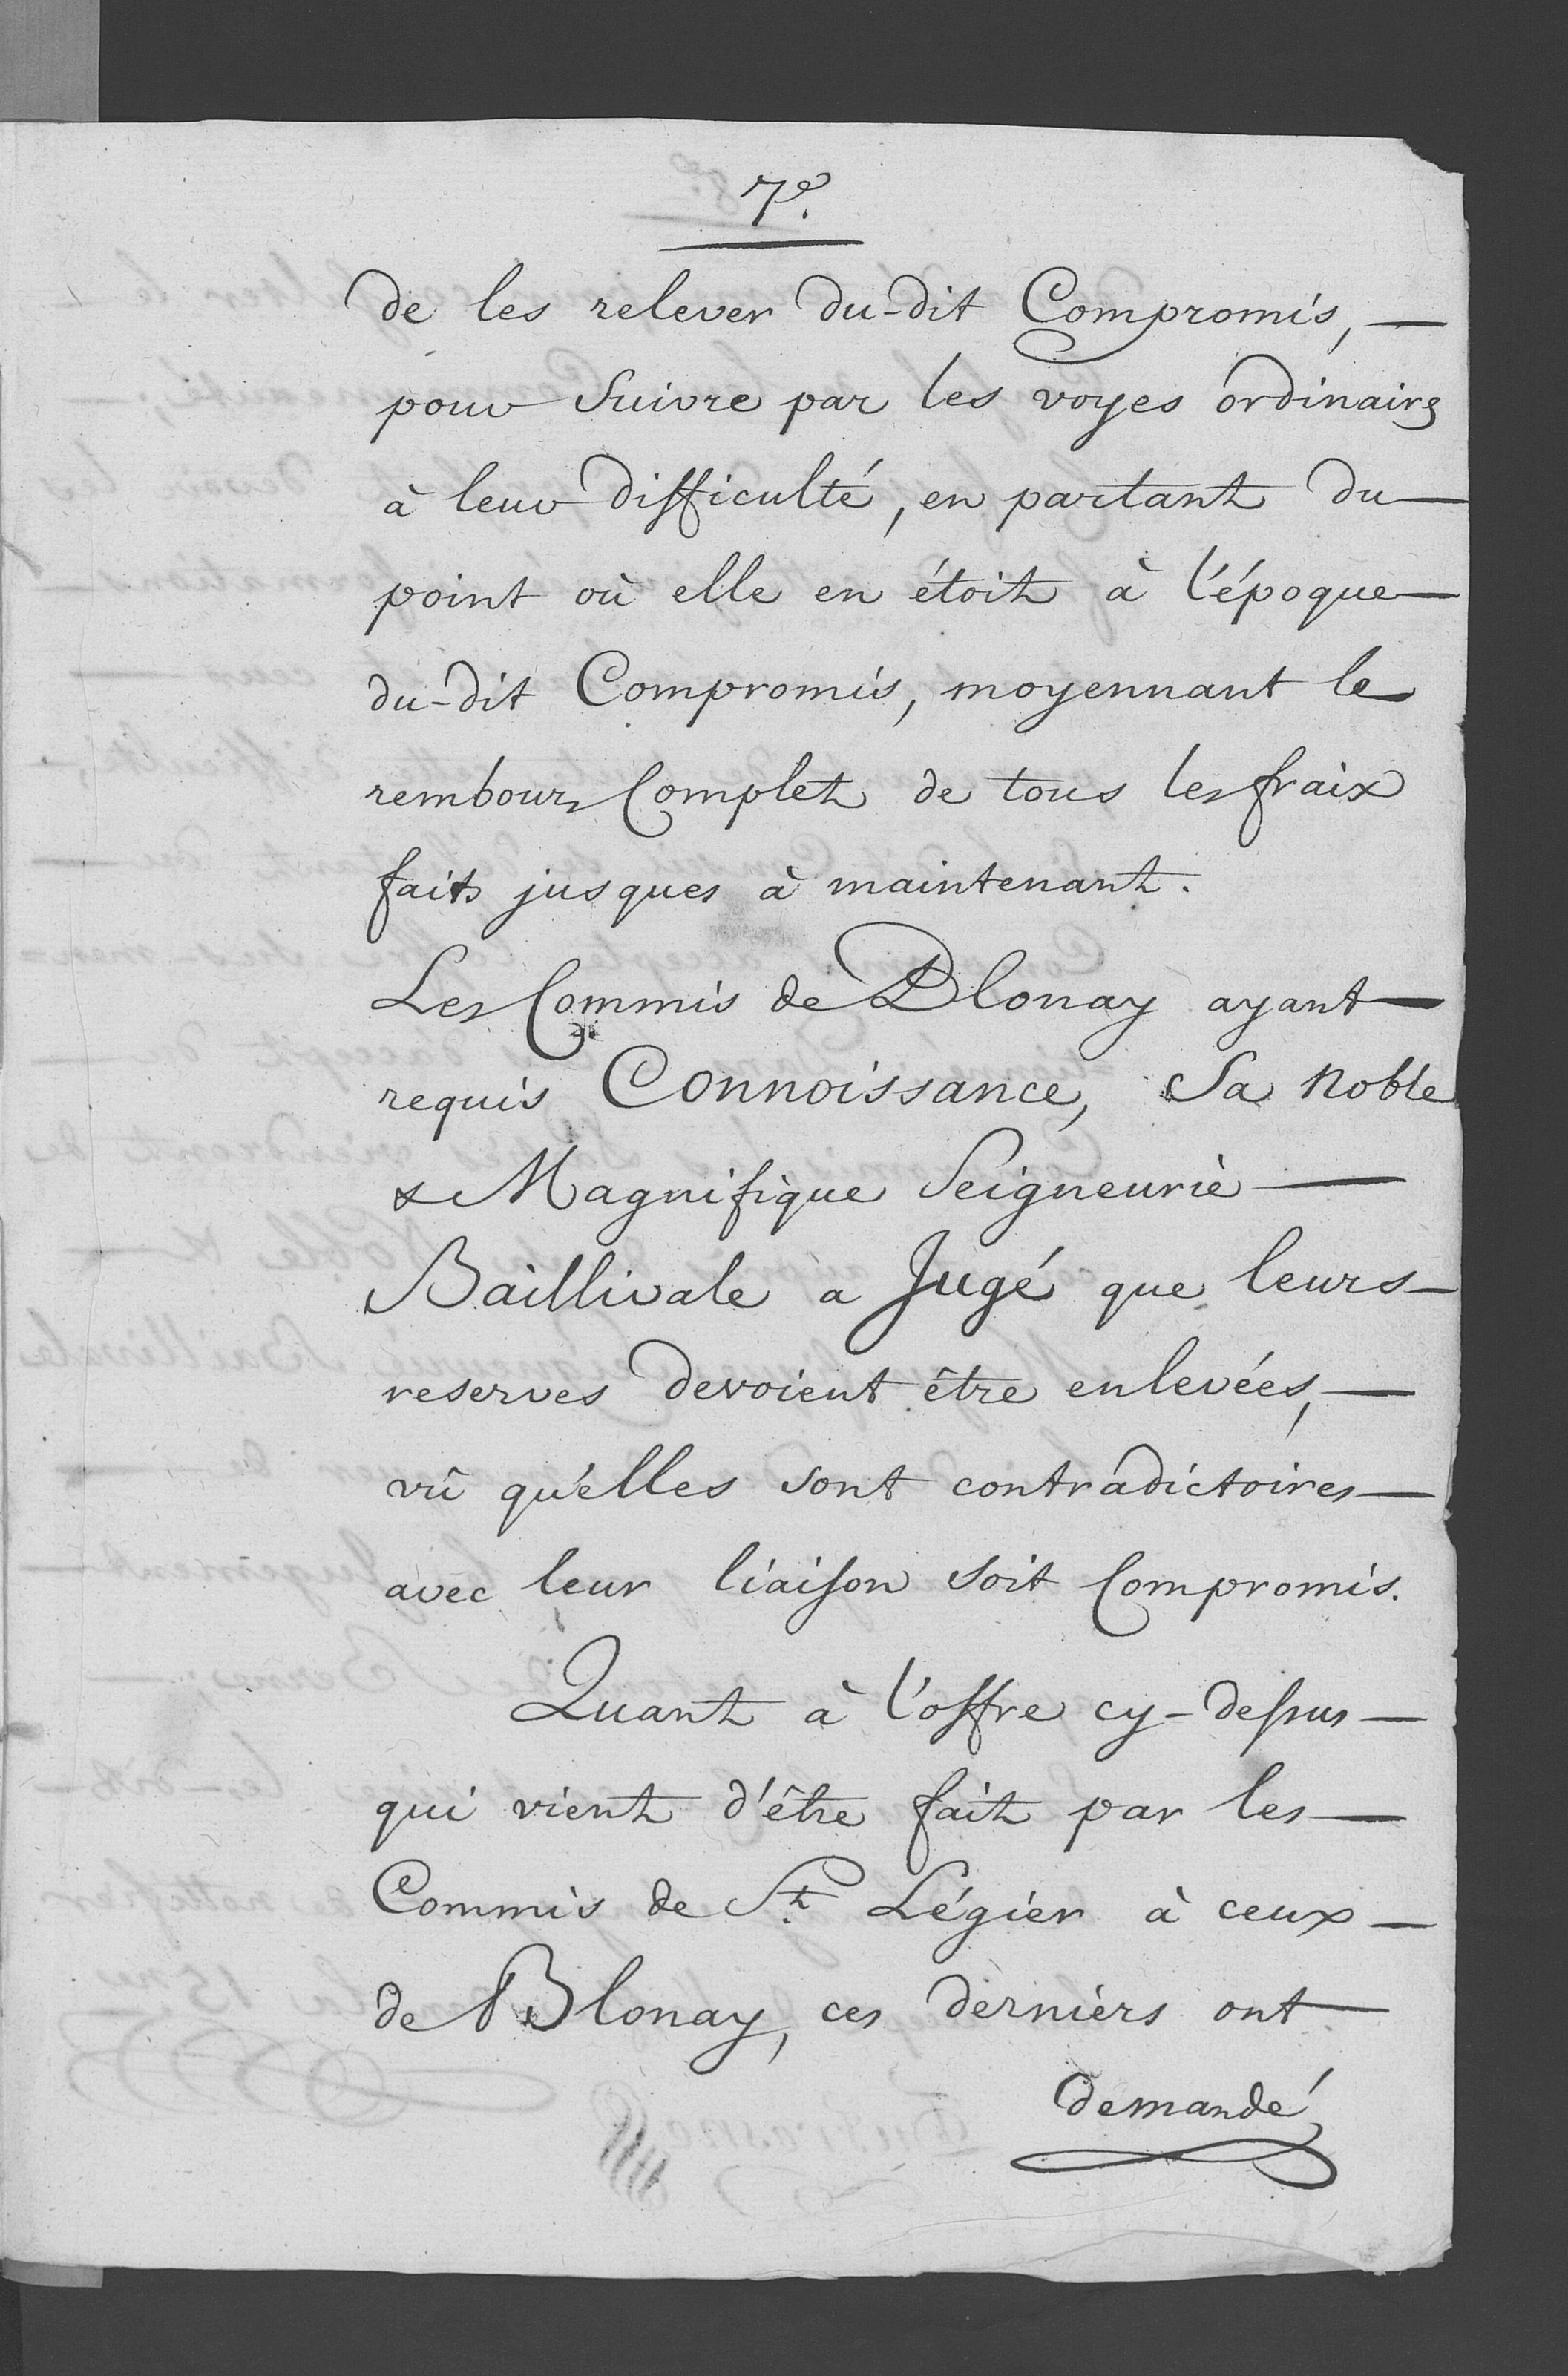 7.e
de les relever du-dit Compromis, —
pour Suivre par les voyes ordinaires
à leur difficulté, en partant du —
point où elle en étoit à l'époque —
du-dit Compromis, moyennant le
rembours Complet de tous les fraix
faits jusques à maintenant.
Les Commis de Blonay ayant —
requis Connoissance, Sa Noble
& Magnifique Seigneurie —
Baillivale a Jugé que leurs —
reserves devoient être enlevées, —
vû qu'elles sont contradictoires —
avec leur liaison soit Compromis.
Quant à l'offre cy-dessus —
qui vient d'être fait par les —
Commis de St. Légier à ceux —
de Blonay, ces derniers ont —
demandé